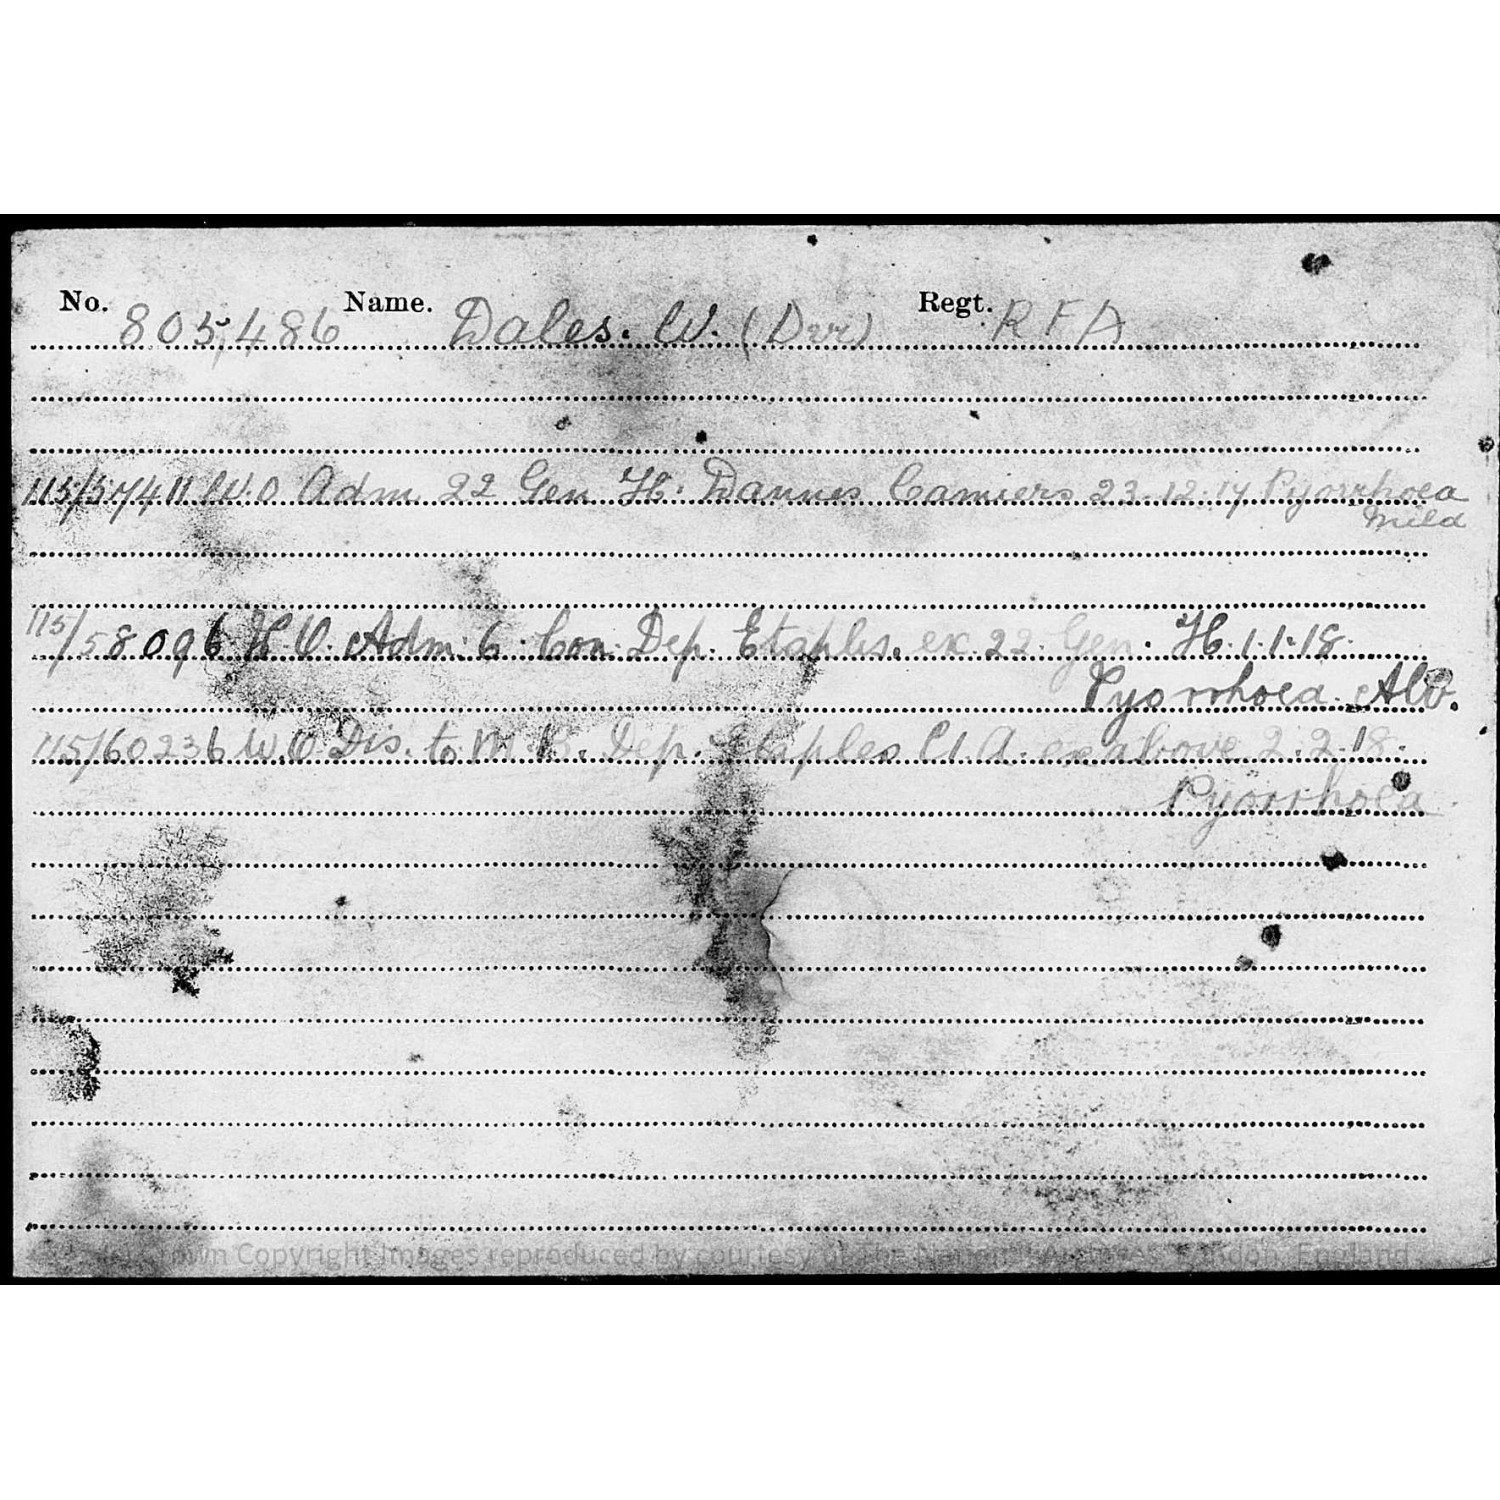 No. 805,486 Name. Dales. W. (Dvr) Regt. RFA
115/57411 W.O Adm 22 Gen H. Dannes Camiers 23.12.17 Pyorrhoea
Mild
115/58096 W.O. Adm. 6. Con Dep. Etaples. ex. 22. Gen. H. 1.1.18.
Pyorrhoea. Alv.
115/60236 W.O Dis. to M.B. Dep. Etaples Cl. A. ex above 2.2.18.
Pyorrhoea.
Crown Copyright Images reproduced by courtesy of The National Archives, London, England